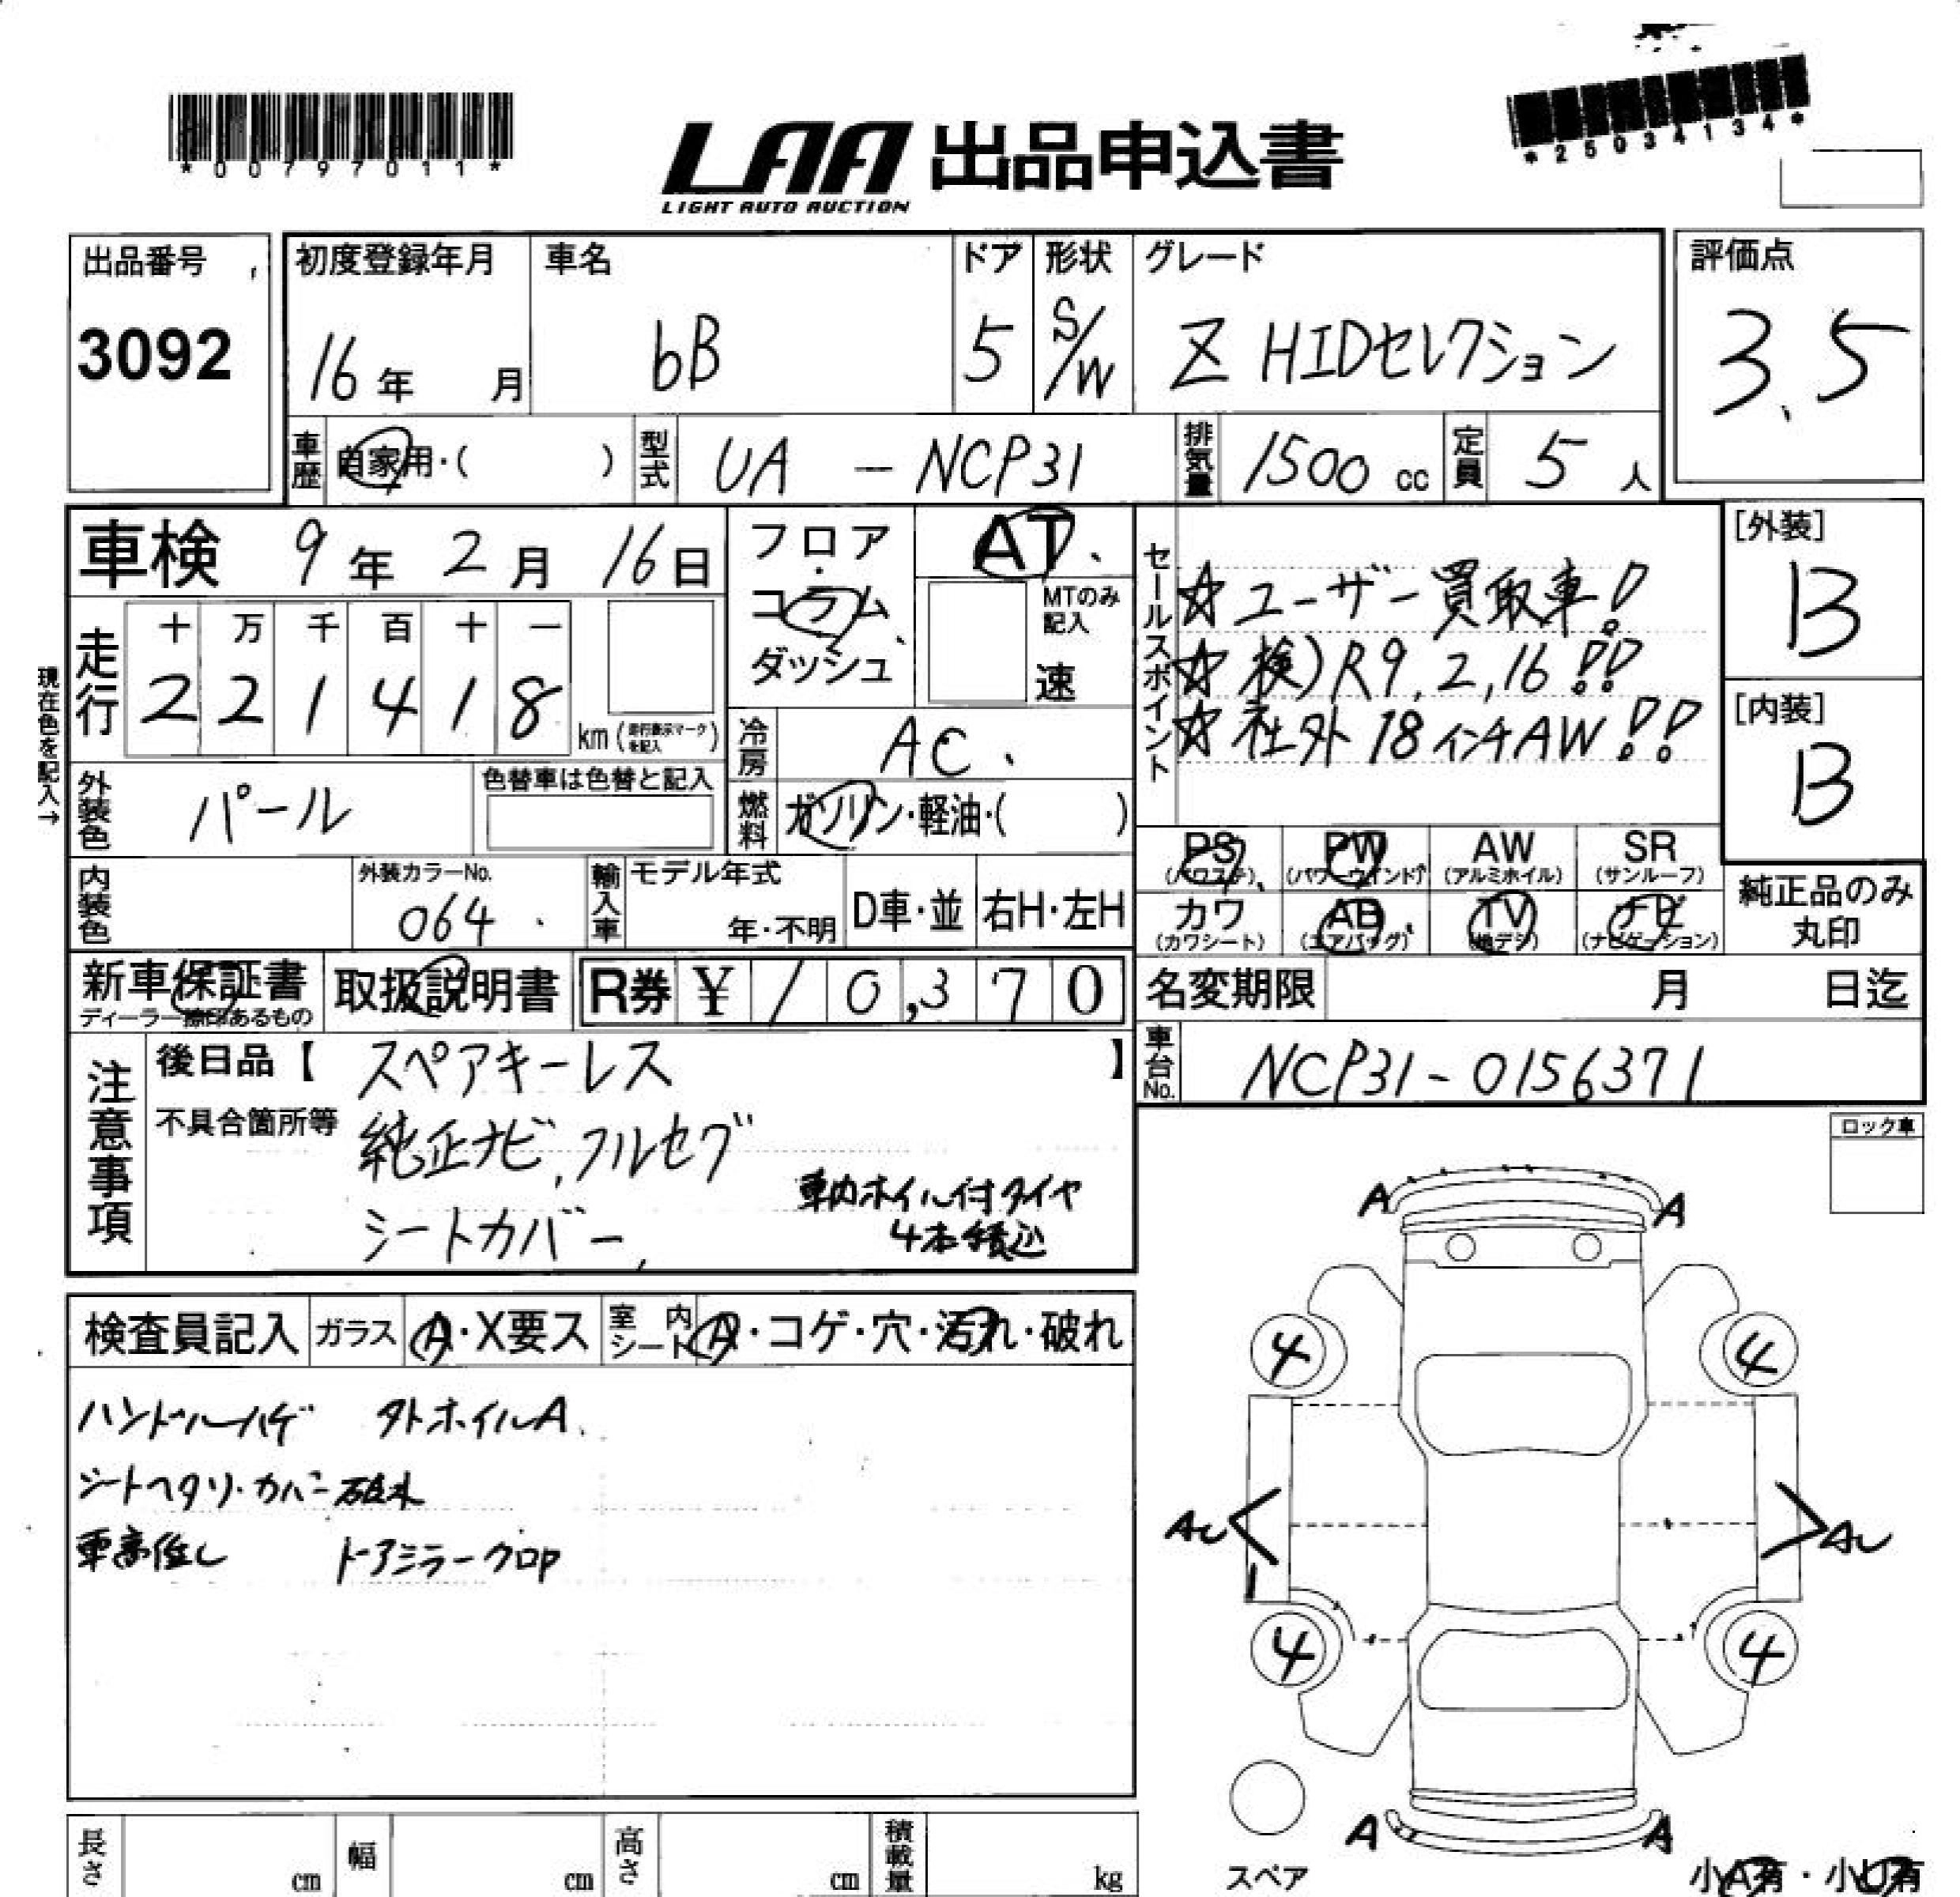 *00797011*
LAA 出品申込書
LIGHT AUTO AUCTION
*25034134*
出品番号
3092
初度登録年月
16年 月
車名
bB
ドア
5
形状
S/W
グレード
Z HIDセレクション
評価点
3.5
車歴 自家用・( )
型式 UA - NCP31
排気量 1500 cc
定員 5 人
車検 9年 2月 16日
フロア・
コラム
ダッシュ
AT
MTのみ
記入
速
セールスポイント
☆ユーザー買取車!
☆検)R9,2,16!!
☆社外18インチAW!!
[外装]
B
[内装]
B
現在色を記入→
走行
十 万 千 百 十 一
2 2 1 4 1 8
km(走行表示マークを記入)
冷房 AC
燃料 ガソリン・軽油・( )
外装色 パール
色替車は色替と記入
内装色
外装カラーNo.
064
輸入車
モデル年式
年・不明
D車・並
右H・左H
PS
(パワステ)
PW
(パワーウインド)
AW
(アルミホイル)
SR
(サンルーフ)
カワ
(カワシート)
AB
(エアバッグ)
TV
(地デジ)
ナビ
(ナビゲーション)
純正品のみ
丸印
新車保証書
ディーラー捺印あるもの
取扱説明書
R券 ¥ 10,370
名変期限 月 日迄
車台No. NCP31-0156371
注意事項
後日品【 スペアキーレス 】
不具合箇所等 純正ナビ,フルセグ
シートカバー
車内ホイル付タイヤ
4本積込
ロック車
検査員記入
ガラス A・X要ス
室内シート A・コゲ・穴・汚れ・破れ
ハンドルハゲ 外ホイルA
シートヘタリ・カバー破れ
車高低し ドアミラークロP
A A
4 4
AU AU
4 4
A A
スペア
小A有・小U有
長さ cm
幅 cm
高さ cm
積載量 kg